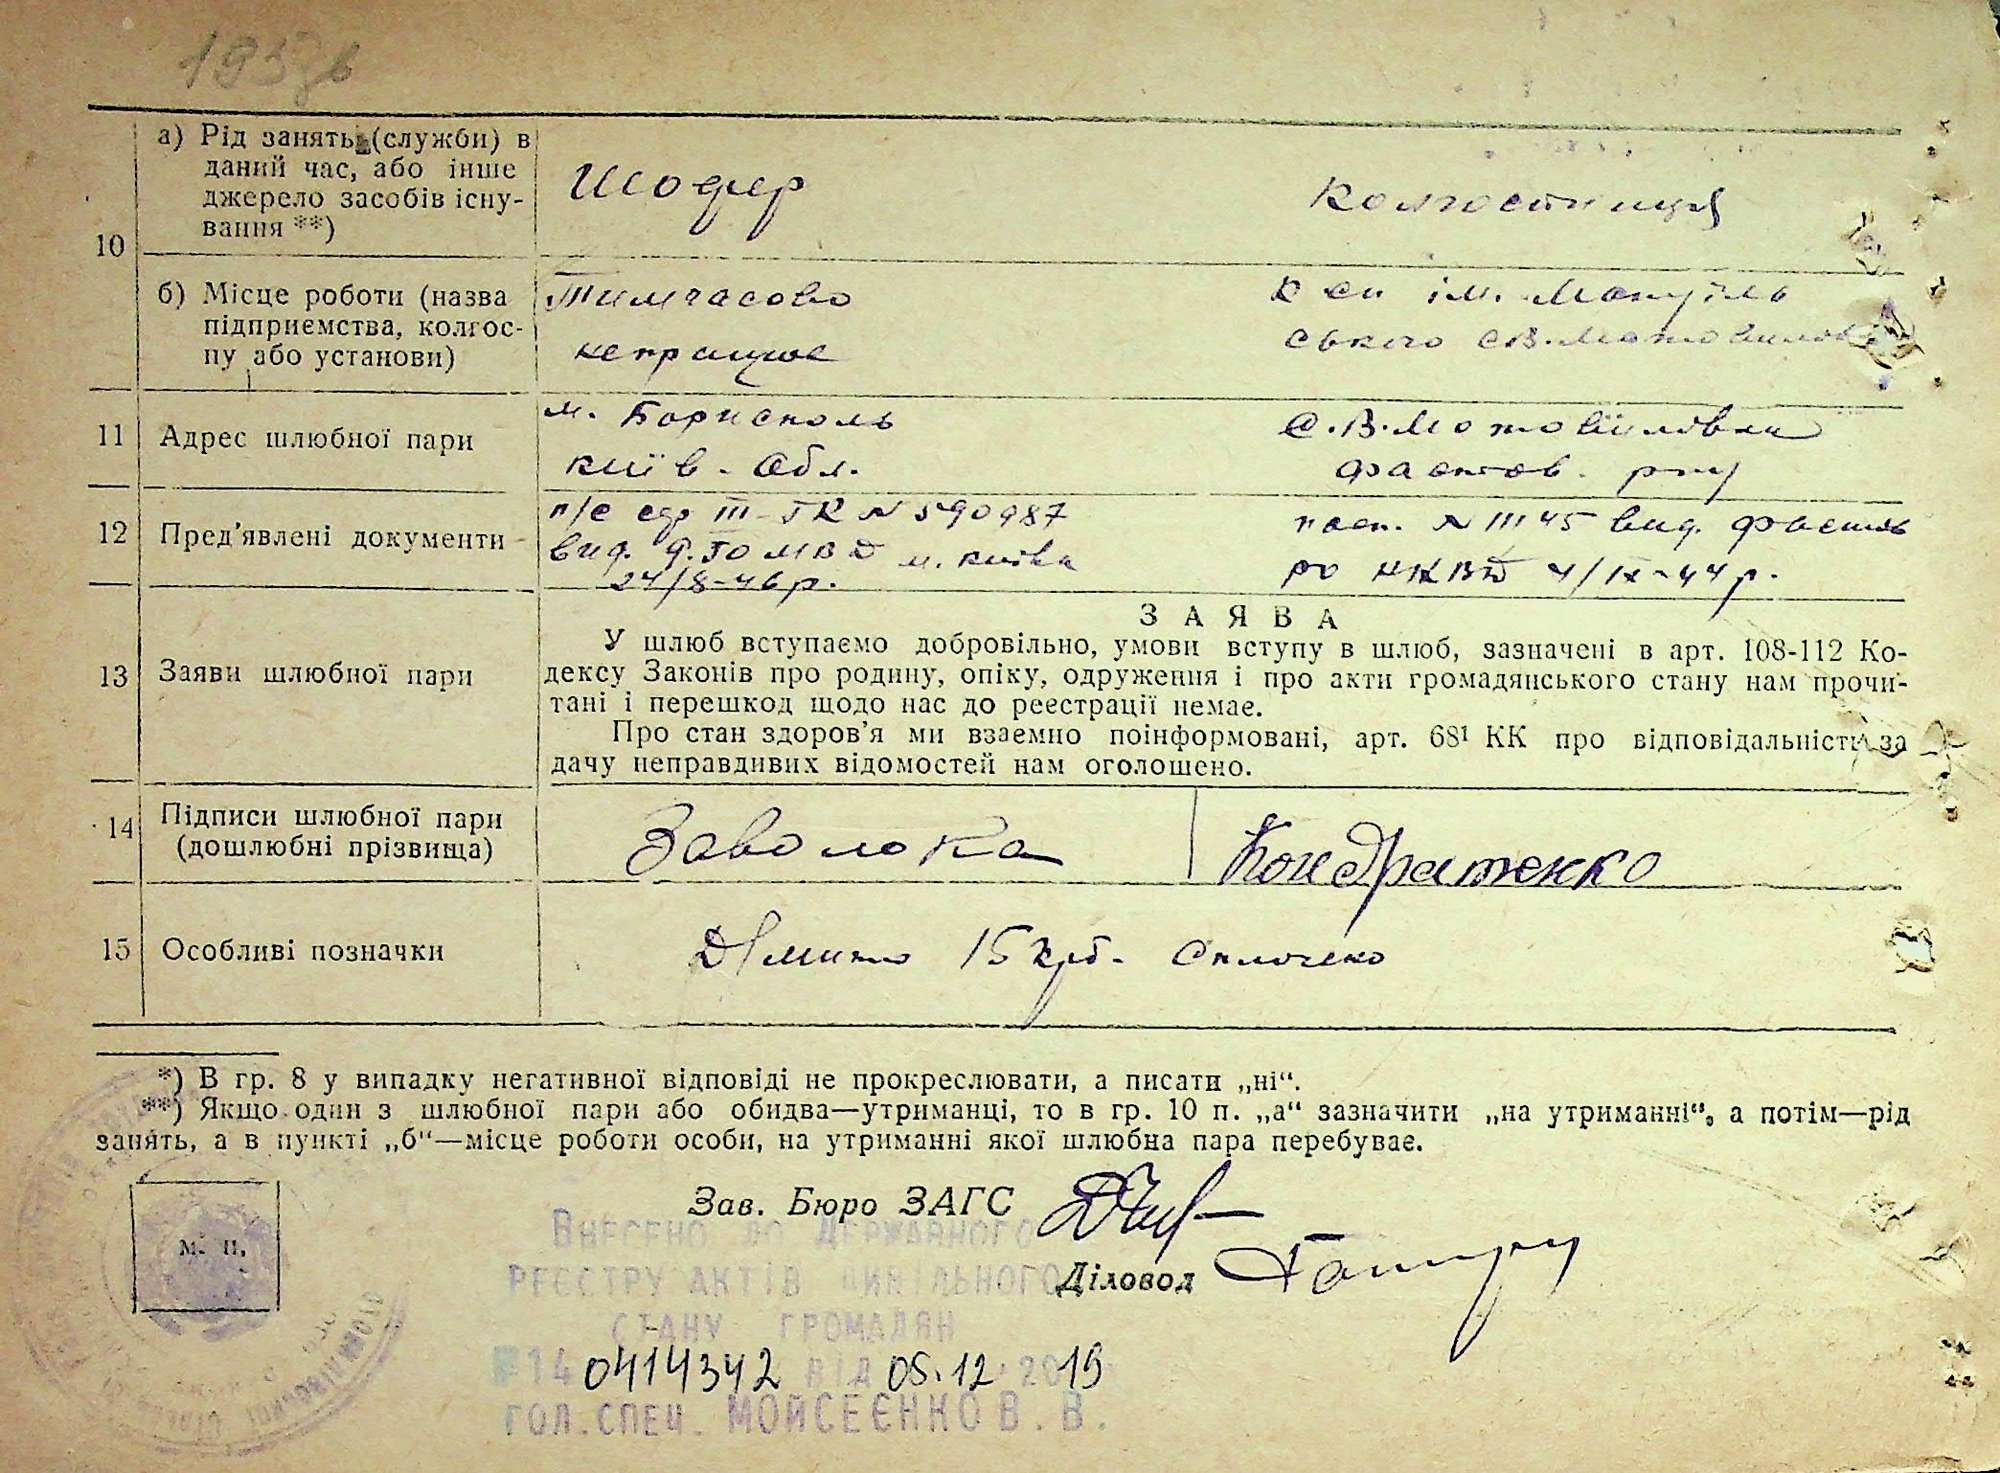 а) Рід занять (служби) в
даний час, або інше
джерело засобів існу-
вання **)
Шофер
колгоспниця
10
б) Місце роботи (назва
підприємства, колгос-
пу або установи)
Тимчасово
непрацює
ім. Мануїль
ського с В. Мотовилов
11
Адрес шлюбної пари
м. Борисполь
київ. обл.
с. В. Мотовилівка
фастов. р-ну
12
Пред'явлені документи
п/с сер III-ГК N 590987
вид. м. києва
24/8-46 р.
пасп. N вид. фастів
РО НКВД 4/IX-44 р.
13
Заяви шлюбної пари
ЗАЯВА
У шлюб вступаємо добровільно, умови вступу в шлюб, зазначені в арт. 108-112 Ко-
дексу Законів про родину, опіку, одруження і про акти громадянського стану нам прочи-
тані і перешкод щодо нас до реєстрації немає.
Про стан здоров'я ми взаємно поінформовані, арт. 68¹ КК про відповідальність за
дачу неправдивих відомостей нам оголошено.
14
Підписи шлюбної пари
(дошлюбні прізвища)
Заволока
Кондратенко
15
Особливі позначки
Д/мито 15 крб. сплочено
*) В гр. 8 у випадку негативної відповіді не прокреслювати, а писати „ні“.
**) Якщо один з шлюбної пари або обидва—утриманці, то в гр. 10 п. „а“ зазначити „на утриманні“, а потім—рід
занять, а в пункті „б“—місце роботи особи, на утриманні якої шлюбна пара перебуває.
м. п.
Зав. Бюро ЗАГС
Діловод
Внесено до Державного
реєстру актів цивільного
стану громадян
№14 0414342 від 05.12.2019
гол. спец. Мойсеєнко В. В.